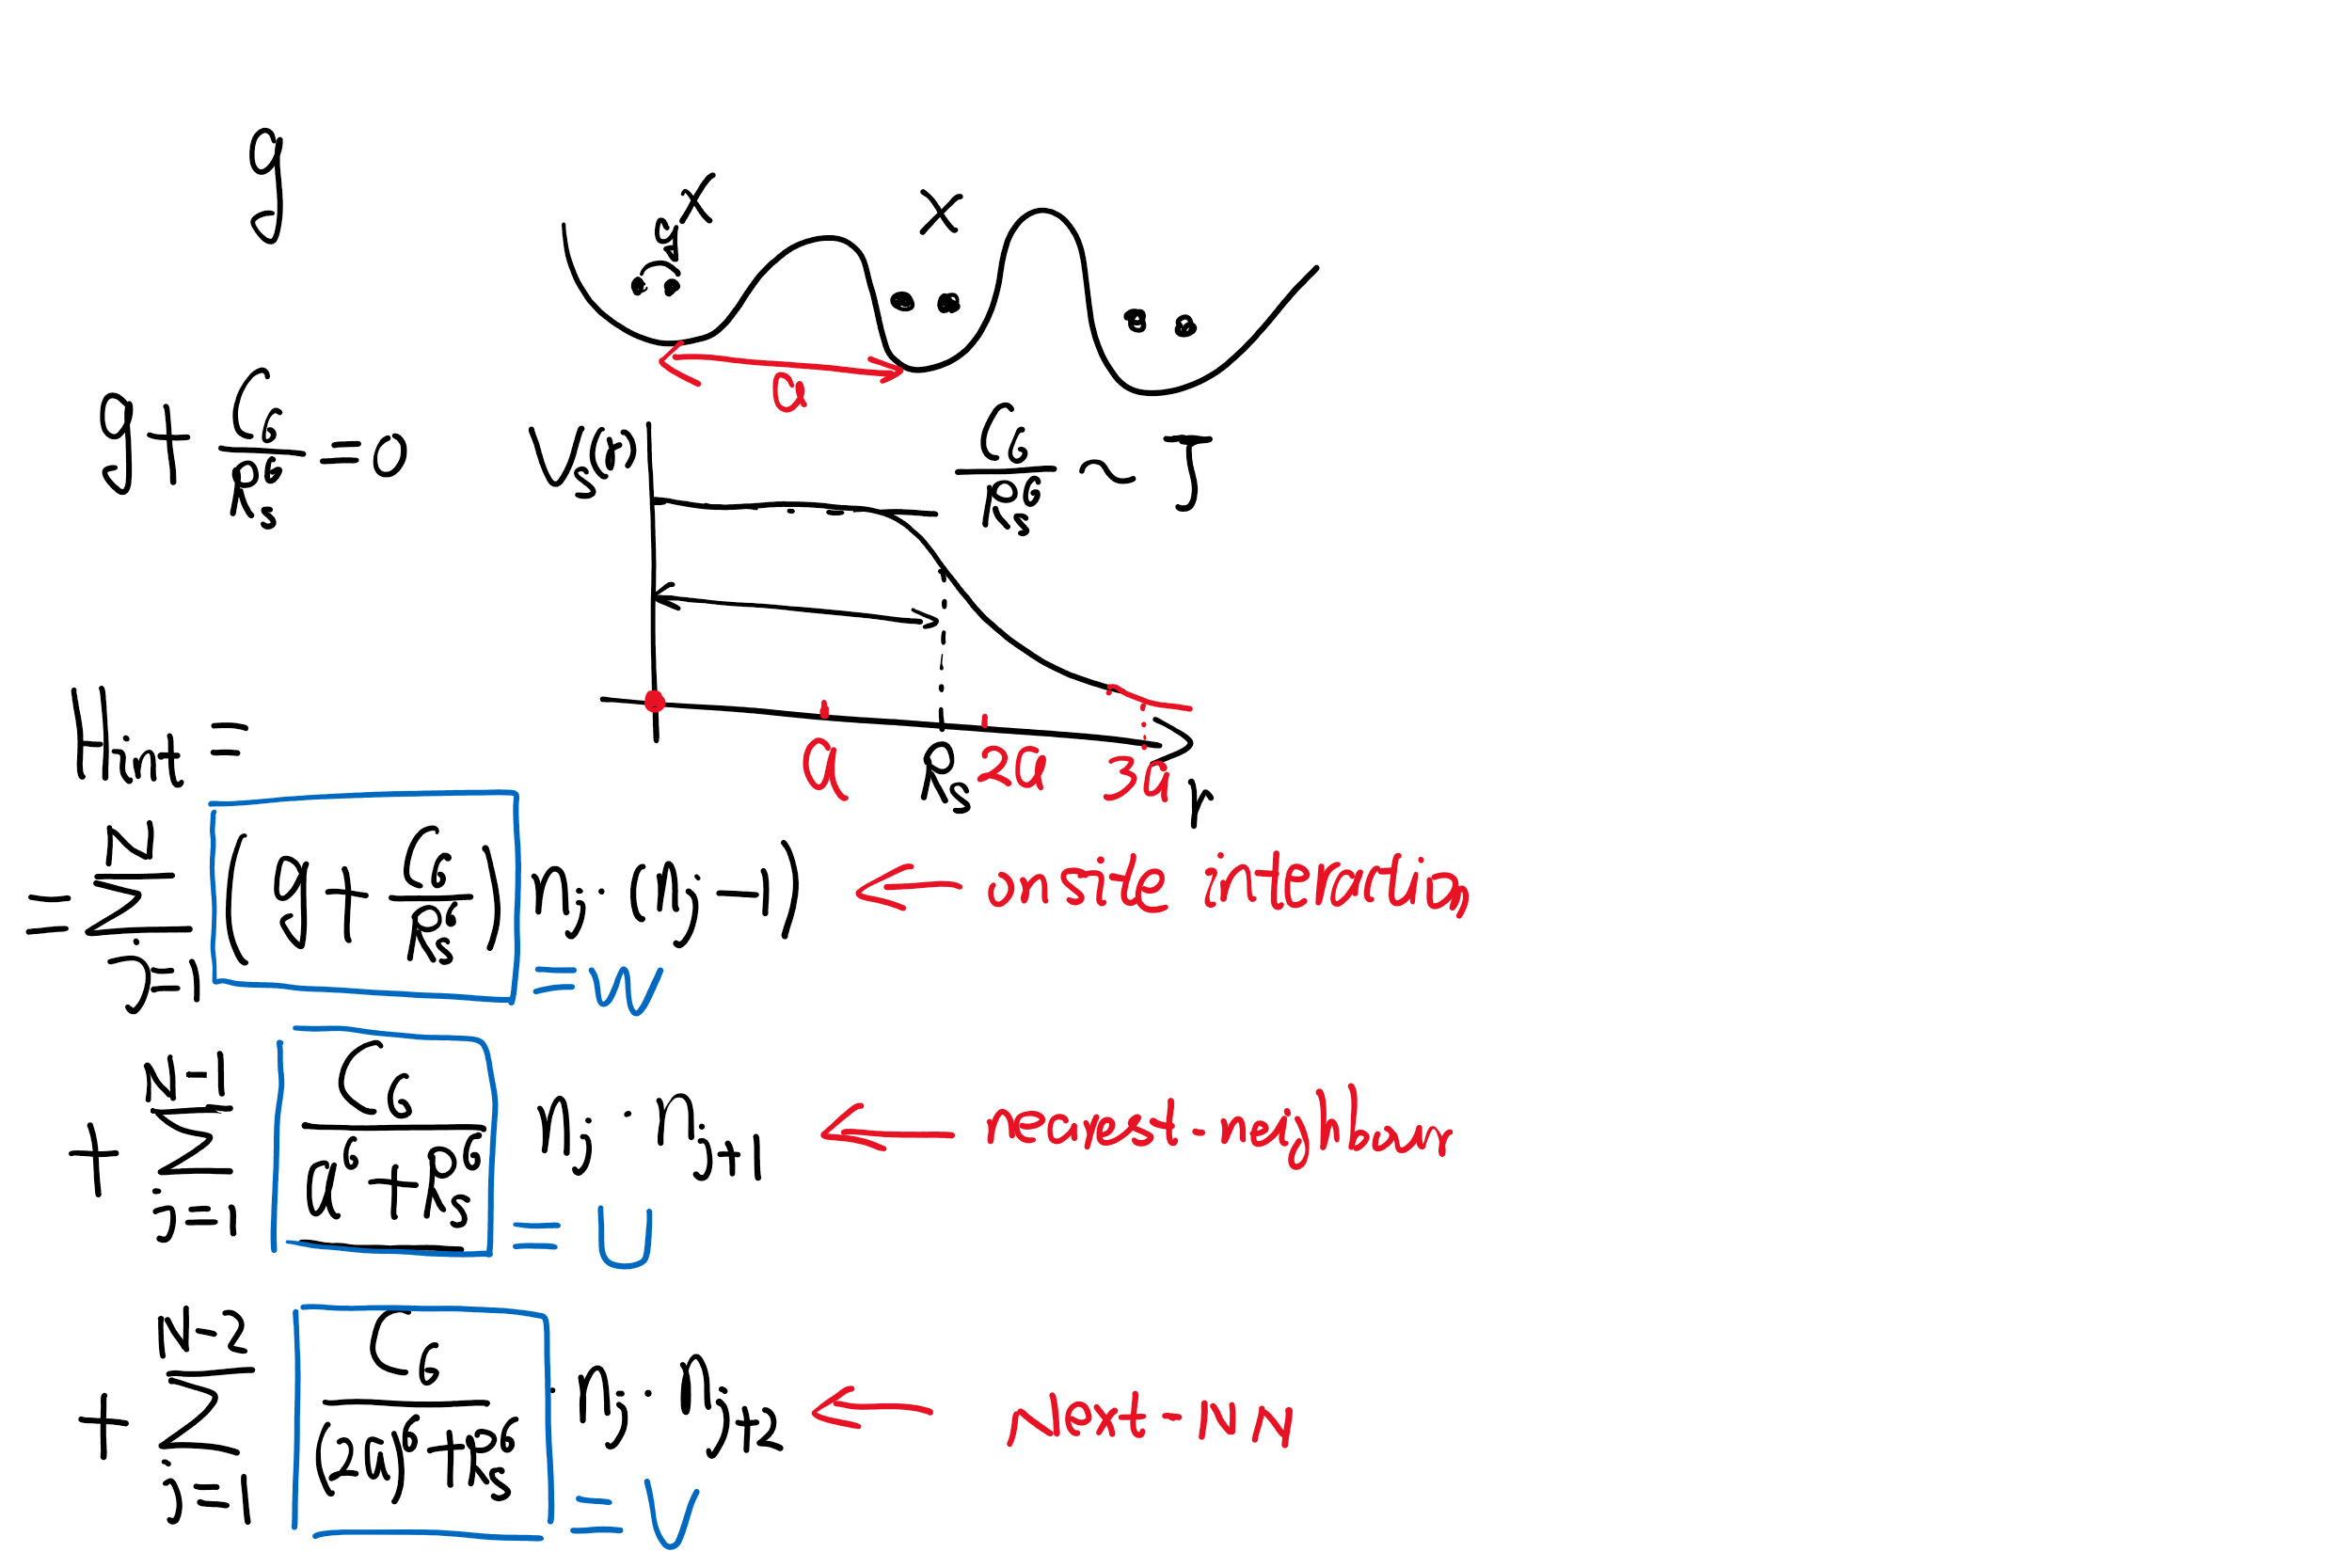 g
g
X
X
a
g + C₆/Rₛ⁶ = 0
Vₛ(r)
C₆/Rₛ⁶ ~ J
a
Rₛ
2a
3a
r
Hint =
= ∑_{j=1}^{N} (g + C₆/Rₛ⁶) nⱼ · (nⱼ - 1) ← on site interaction,
= W
+ ∑_{j=1}^{N-1} C₆/(a⁶ + Rₛ⁶) nⱼ · nⱼ₊₁ ← nearest-neighbour
= U
+ ∑_{j=1}^{N-2} C₆/((2a)⁶ + Rₛ⁶) · nⱼ · nⱼ₊₂ ← Next-NN
= V